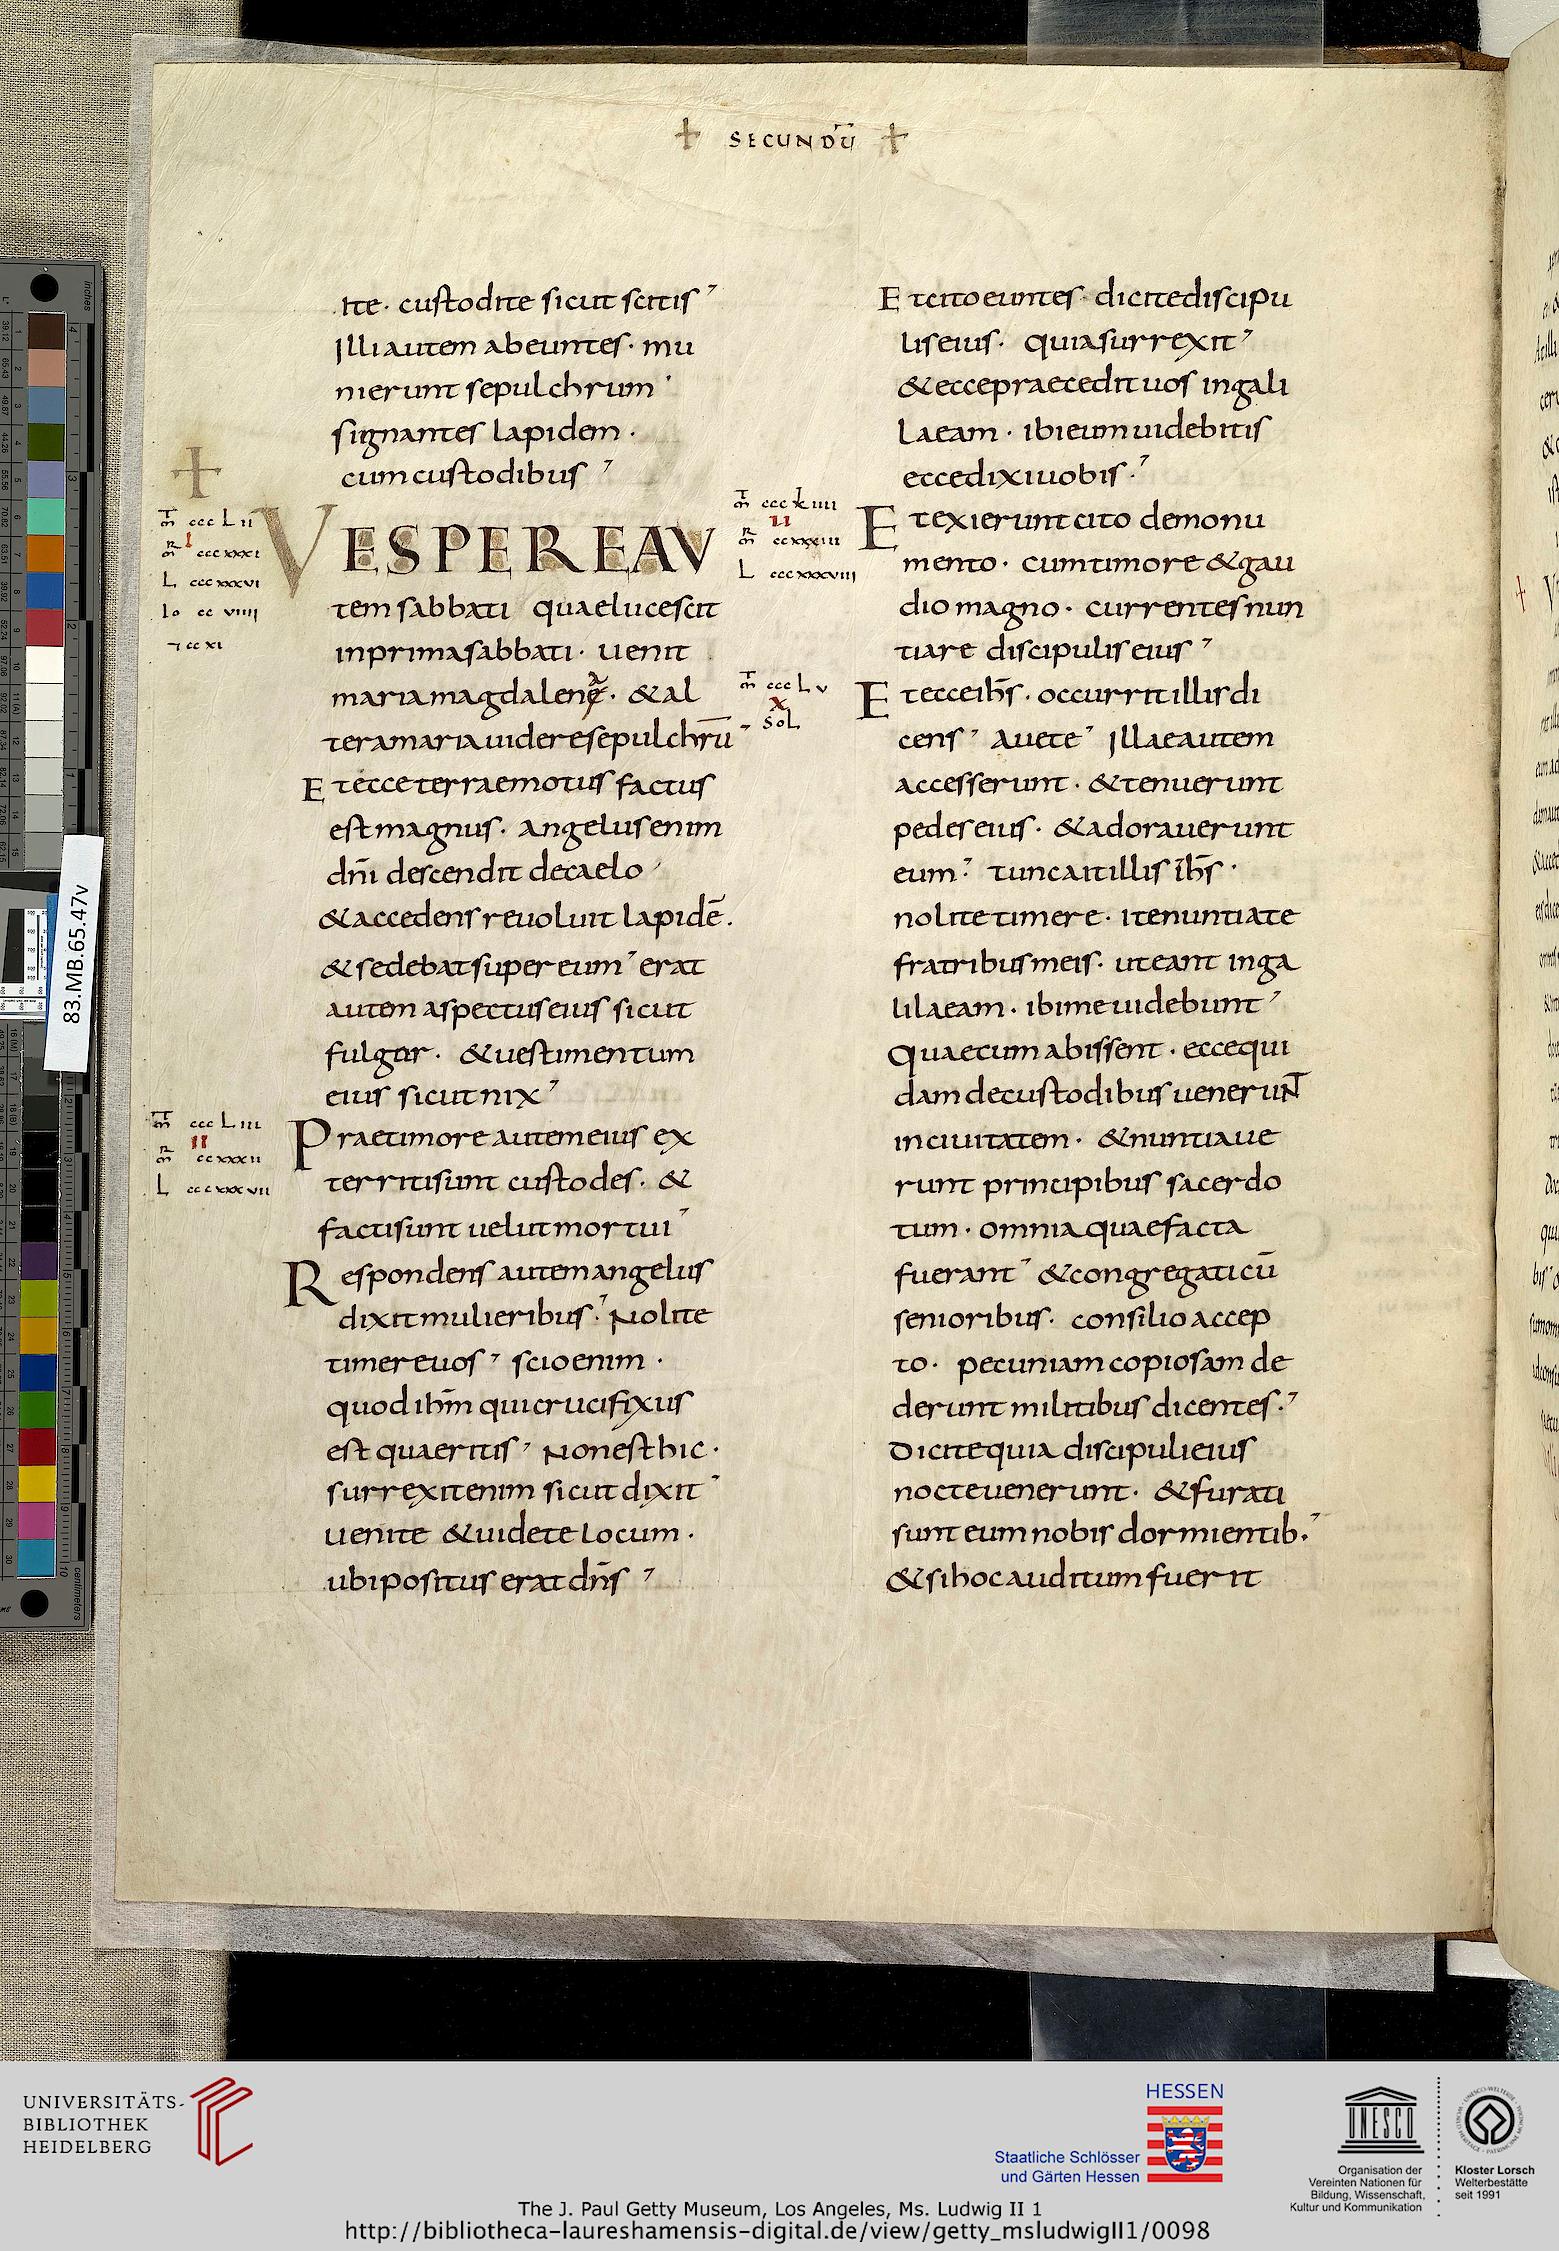 SECUNDU̅
ite· custodite sicut scitis
Illi autem abeuntes· mu
nierunt sepulchrum
signantes lapidem·
cum custodibus
m̅ ccc L ii
i
mr̅ cccxxxi
L cccxxxvi
Io cc viiii
ccxi
VESPERE AU
tem sabbati quae lucescit
in prima sabbati· uenit
maria magdalene· & al
tera maria uidere sepulchru̅
Et ecce terrae motus factus
est magnus· angelus enim
dn̅i descendit de caelo
& accedens reuoluit lapide̅.
& sedebat super eum erat
autem aspectus eius sicut
fulgur· & uestimentum
eius sicut nix
m̅ ccc L iii
ii
mr̅ ccxxxii
L cccxxxvii
Prae timore autem eius ex
territi sunt custodes· &
facti sunt uelut mortui
Respondens autem angelus
dixit mulieribus· Nolite
timere uos scio enim·
quod ihm̅ qui crucifixus
est quaeritis Non est hic·
surrexit enim sicut dixit
uenite & uidete locum·
ubi positus erat dn̅s
Et cito euntes· dicite discipu
lis eius· quia surrexit
& ecce praecedit uos in gali
laeam· ibi eum uidebitis
ecce dixi uobis·
m̅ ccc L iiii
ii
mr̅ ccxxxiii
L cccxxxviii
Et exierunt cito de monu
mento· cum timore & gau
dio magno· currentes nun
tiare discipulis eius
m̅ ccc L v
x
SOL
Et ecce ih̅s· occurrit illis di
cens auete Illae autem
accesserunt· & tenuerunt
pedes eius· & adorauerunt
eum· tunc ait illis ih̅s·
nolite timere· ite nuntiate
fratribus meis· ut eant in ga
lilaeam· ibi me uidebunt
Quae cum abissent· ecce qui
dam de custodibus uenerunt
in ciuitatem· & nuntiaue
runt principibus sacerdo
tum· omnia quae facta
fuerant & congregati cu̅
senioribus· consilio accep
to· pecuniam copiosam de
derunt militibus dicentes·
Dicite quia discipuli eius
nocte uenerunt· & furati
sunt eum nobis dormientib·
& si hoc auditum fuerit
83.MB.65.47v
inches
centimeters
UNIVERSITÄTS-
BIBLIOTHEK
HEIDELBERG
HESSEN
Staatliche Schlösser
und Gärten Hessen
UNESCO
Organisation der
Vereinten Nationen für
Bildung, Wissenschaft,
Kultur und Kommunikation
Kloster Lorsch
Welterbestätte
seit 1991
The J. Paul Getty Museum, Los Angeles, Ms. Ludwig II 1
http://bibliotheca-laureshamensis-digital.de/view/getty_msludwigII1/0098